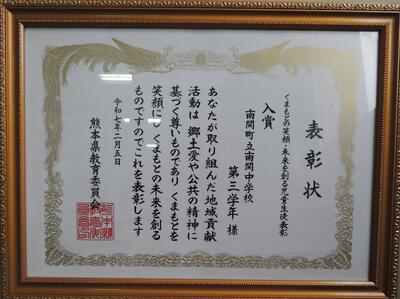 表彰状
くまもとの笑顔、未来を創る児童生徒表彰
入賞
南関町立南関中学校
第三学年 様
あなたが取り組んだ地域貢献
活動は 郷土愛や公共の精神に
基づく尊いものであり くまもとを
笑顔にし くまもとの未来を創る
ものですのでこれを表彰します
令和七年二月五日
熊本県教育委員会